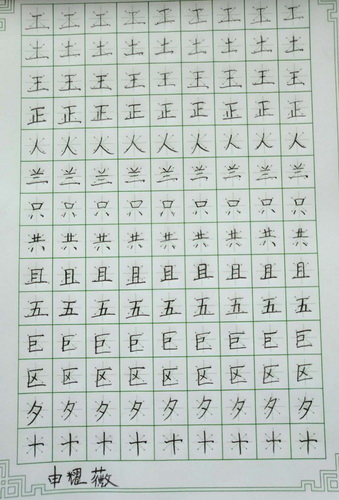 工工工工工工工工工
土土土土土土土土土
王王王王王王王王王
正正正正正正正正正
人人人人人人人人人
兰兰兰兰兰兰兰兰兰
只只只只只只只只只
共共共共共共共共共
且且且且且且且且且
五五五五五五五五五
巨巨巨巨巨巨巨巨巨
区区区区区区区区区
夕夕夕夕夕夕夕夕夕
十十十十十十十十十
申耀薇